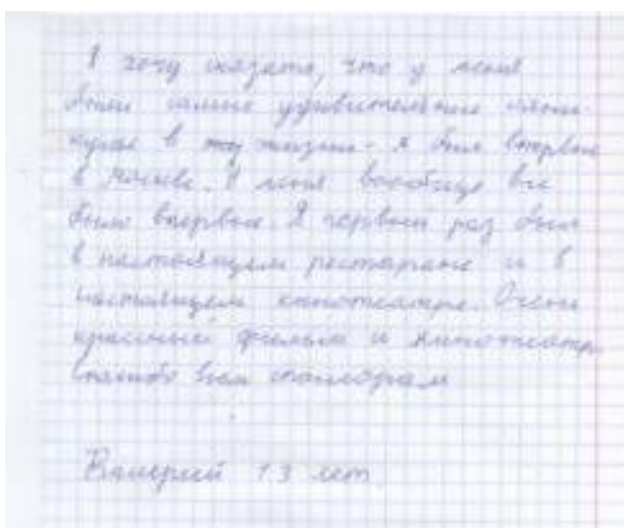 Я хочу сказать, что у меня
были самые удивительные кани-
кулы в жизни - я был впервые
в Москве. У меня вообще все
было впервые. Я первый раз был
в настоящем ресторане и в
настоящем кинотеатре. Очень
красивый фильм и кинотеатр
Спасибо всем
Валерий 13 лет